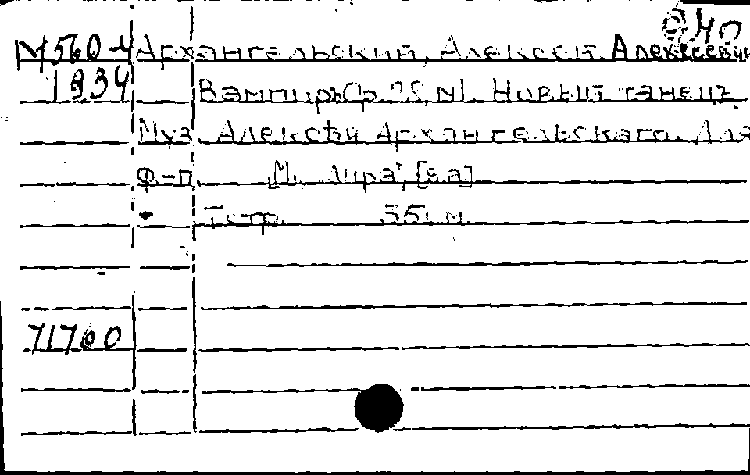 40
М560-4 Архангельский, Алексей Алексеевич
1834 Вампиръ Ор. №1. Новый танецъ
Муз. Алексѣя Архангельскаго. Для
ф-п. М. "Лира", [б.г.]
7 стр. 35 см.
71760